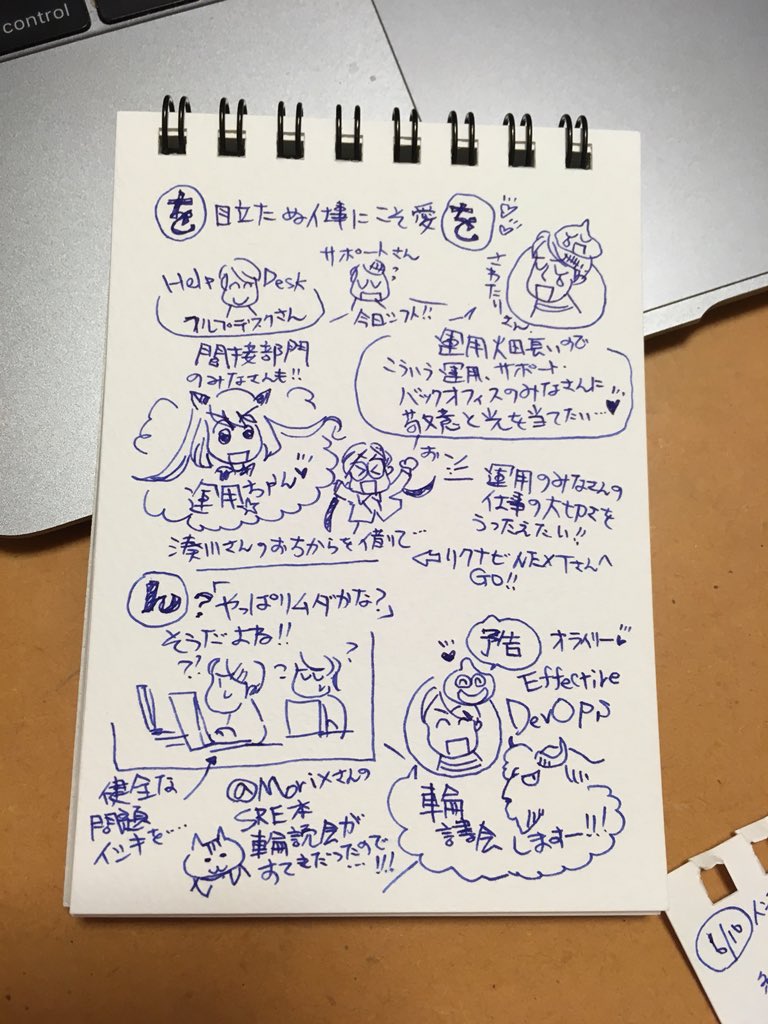 control
を 目立たぬ仕事にこそ愛を
サポートさん
Help Desk
ヘルプデスクさん
今日シフト!!
さわたりさん
間接部門
のみなさんも!!
運用畑長いので
こういう運用、サポート・
バックオフィスのみなさんに
敬意と光を当てたい…♥
運用ちゃん♥
お
運用のみなさんの
仕事の大切さを
うったえたい!!
湊川さんのおちからを借りて…
⇦リクナビNEXTさんへ
GO!!
ん?「やっぱりムダかな?」
そうだよね!!
??
?
予告
オライリー♥
Effective
DevOps
健全な
問題
イシキを…
@Morixさんの
SRE本
輪読会が
すてきだったので
…!!!
輪
読会しますー!!!
6/10